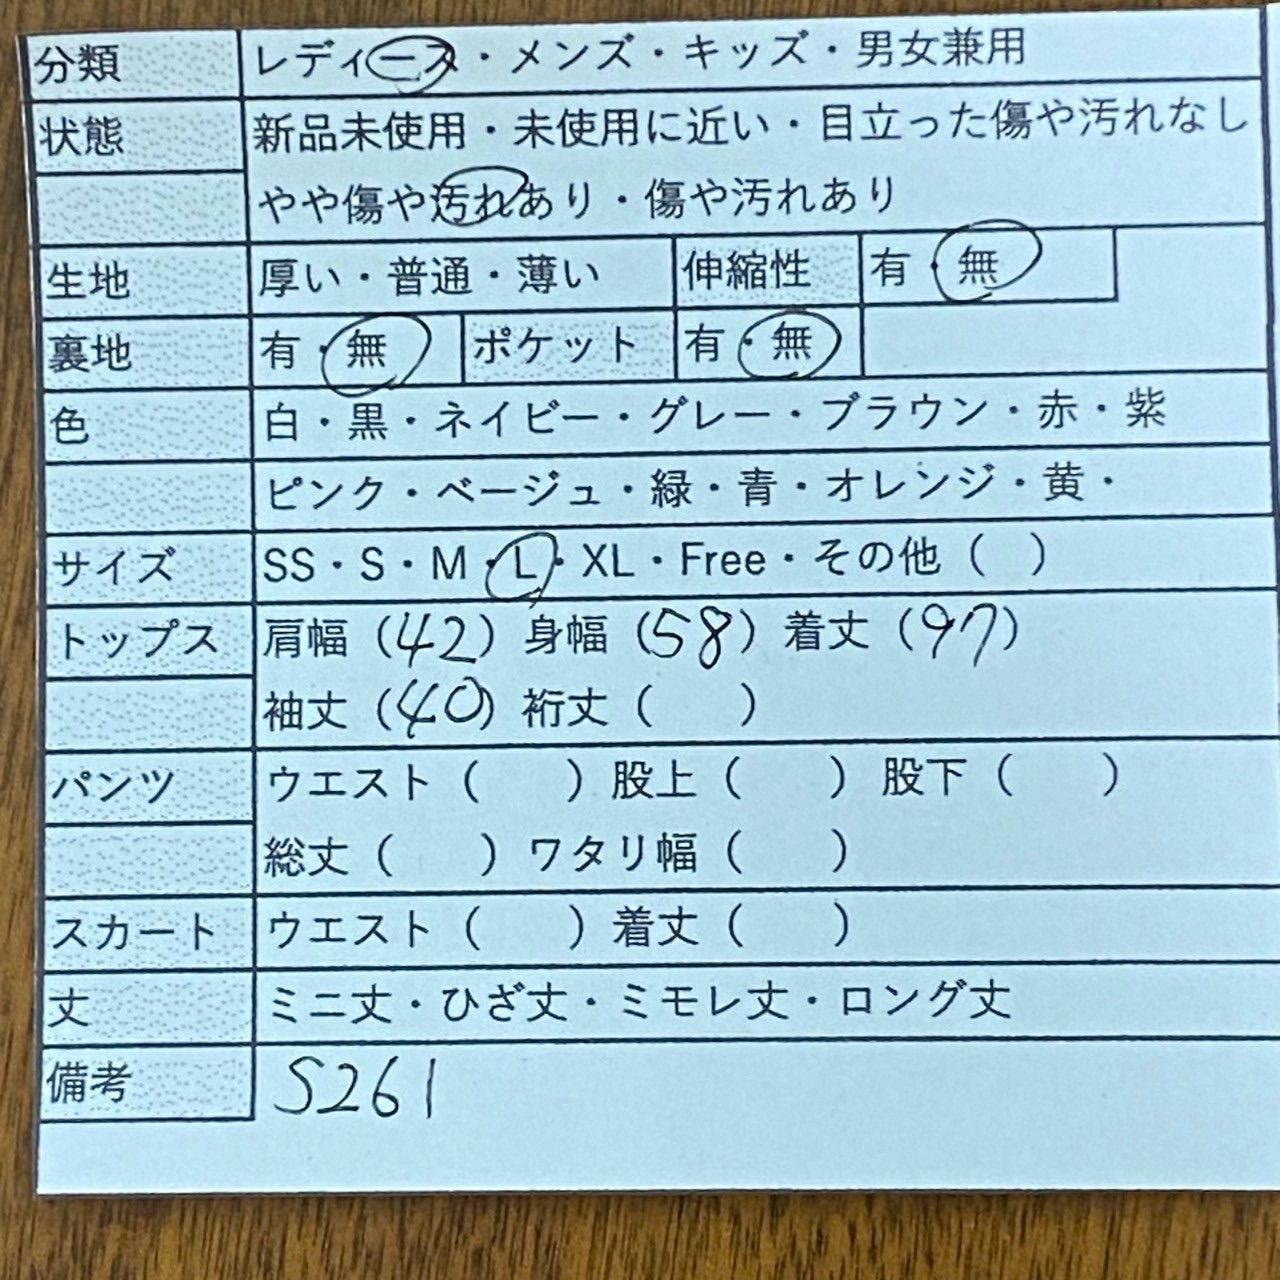 分類 レディース・メンズ・キッズ・男女兼用
状態 新品未使用・未使用に近い・目立った傷や汚れなし
やや傷や汚れあり・傷や汚れあり
生地 厚い・普通・薄い 伸縮性 有・無
裏地 有・無 ポケット 有・無
色 白・黒・ネイビー・グレー・ブラウン・赤・紫
ピンク・ベージュ・緑・青・オレンジ・黄・
サイズ SS・S・M・L・XL・Free・その他（ ）
トップス 肩幅（42）身幅（58）着丈（97）
袖丈（40）裄丈（ ）
パンツ ウエスト（ ）股上（ ）股下（ ）
総丈（ ）ワタリ幅（ ）
スカート ウエスト（ ）着丈（ ）
丈 ミニ丈・ひざ丈・ミモレ丈・ロング丈
備考 S261